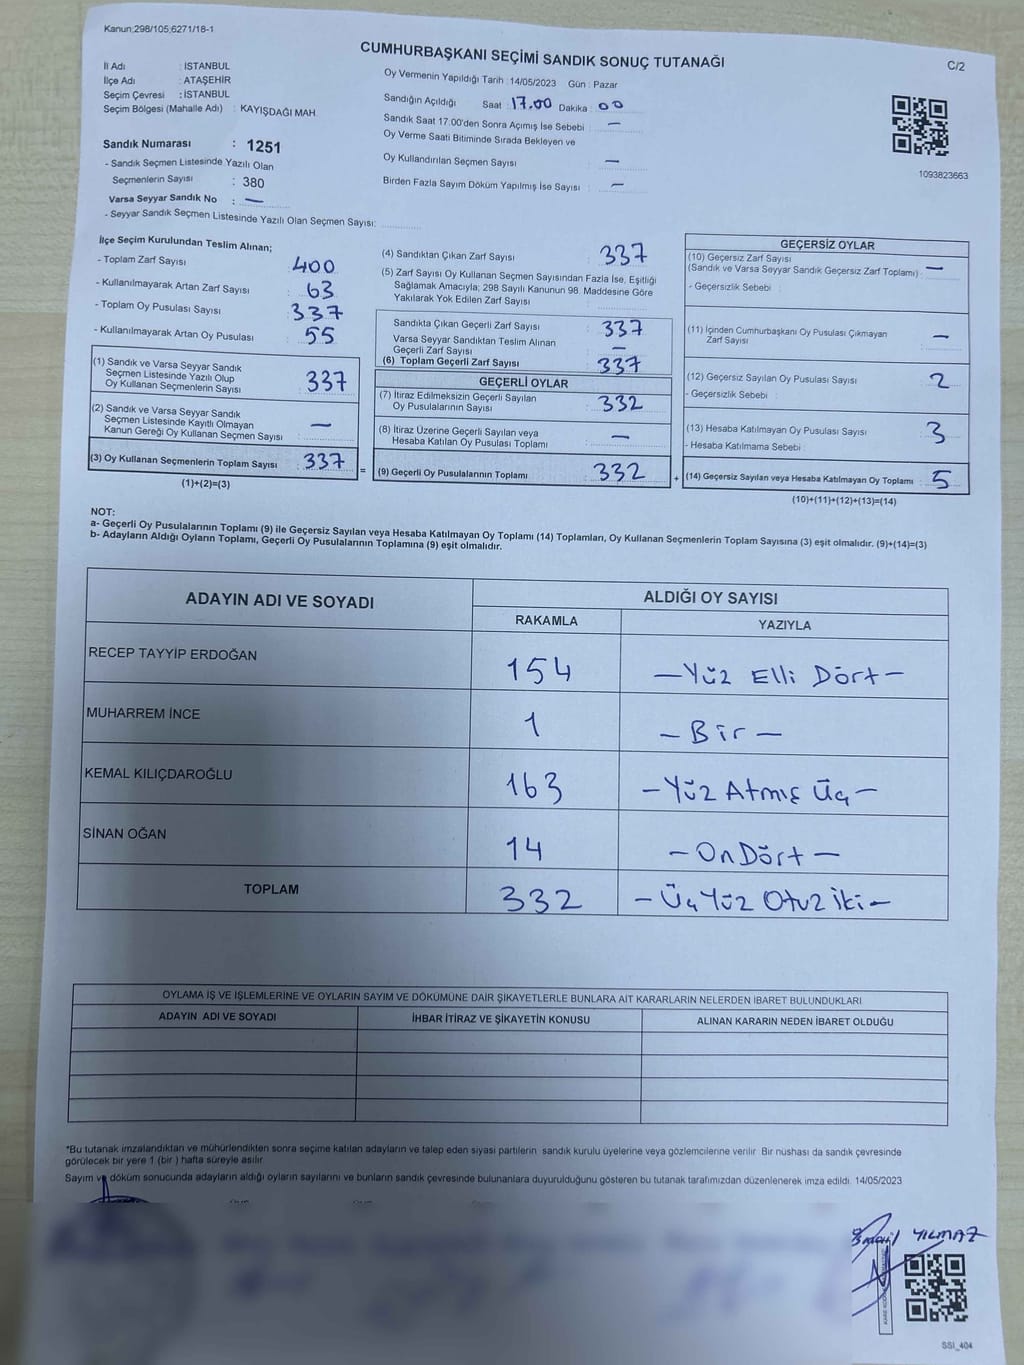 Kanun;298/105;6271/18-1
CUMHURBAŞKANI SEÇİMİ SANDIK SONUÇ TUTANAĞI
C/2
İl Adı : İSTANBUL
İlçe Adı : ATAŞEHİR
Seçim Çevresi : İSTANBUL
Seçim Bölgesi (Mahalle Adı) : KAYIŞDAĞI MAH.
Sandık Numarası : 1251
- Sandık Seçmen Listesinde Yazılı Olan
Seçmenlerin Sayısı : 380
Varsa Seyyar Sandık No : —
- Seyyar Sandık Seçmen Listesinde Yazılı Olan Seçmen Sayısı:
Oy Vermenin Yapıldığı Tarih : 14/05/2023 Gün : Pazar
Sandığın Açıldığı Saat : 17.00 Dakika : 00
Sandık Saat 17.00'den Sonra Açımış İse Sebebi : —
Oy Verme Saati Bitiminde Sırada Bekleyen ve
Oy Kullandırılan Seçmen Sayısı : —
Birden Fazla Sayım Döküm Yapılmış İse Sayısı : —
1093823663
İlçe Seçim Kurulundan Teslim Alınan;
- Toplam Zarf Sayısı : 400
- Kullanılmayarak Artan Zarf Sayısı : 63
- Toplam Oy Pusulası Sayısı : 337
- Kullanılmayarak Artan Oy Pusulası : 55
(1) Sandık ve Varsa Seyyar Sandık
Seçmen Listesinde Yazılı Olup
Oy Kullanan Seçmenlerin Sayısı : 337
(2) Sandık ve Varsa Seyyar Sandık
Seçmen Listesinde Kayıtlı Olmayan
Kanun Gereği Oy Kullanan Seçmen Sayısı : —
(3) Oy Kullanan Seçmenlerin Toplam Sayısı : 337 =
(1)+(2)=(3)
(4) Sandıktan Çıkan Zarf Sayısı : 337
(5) Zarf Sayısı Oy Kullanan Seçmen Sayısından Fazla İse, Eşitliği
Sağlamak Amacıyla; 298 Sayılı Kanunun 98. Maddesine Göre
Yakılarak Yok Edilen Zarf Sayısı :
Sandıkta Çıkan Geçerli Zarf Sayısı : 337
Varsa Seyyar Sandıktan Teslim Alınan
Geçerli Zarf Sayısı : —
(6) Toplam Geçerli Zarf Sayısı : 337
GEÇERLİ OYLAR
(7) İtiraz Edilmeksizin Geçerli Sayılan
Oy Pusulalarının Sayısı : 332
(8) İtiraz Üzerine Geçerli Sayılan veya
Hesaba Katılan Oy Pusulası Toplamı : —
(9) Geçerli Oy Pusulalarının Toplamı : 332 +
GEÇERSİZ OYLAR
(10) Geçersiz Zarf Sayısı
(Sandık ve Varsa Seyyar Sandık Geçersiz Zarf Toplamı) : —
- Geçersizlik Sebebi :
(11) İçinden Cumhurbaşkanı Oy Pusulası Çıkmayan
Zarf Sayısı : —
(12) Geçersiz Sayılan Oy Pusulası Sayısı : 2
- Geçersizlik Sebebi :
(13) Hesaba Katılmayan Oy Pusulası Sayısı : 3
- Hesaba Katılmama Sebebi :
(14) Geçersiz Sayılan veya Hesaba Katılmayan Oy Toplamı : 5
(10)+(11)+(12)+(13)=(14)
NOT:
a- Geçerli Oy Pusulalarının Toplamı (9) ile Geçersiz Sayılan veya Hesaba Katılmayan Oy Toplamı (14) Toplamları, Oy Kullanan Seçmenlerin Toplam Sayısına (3) eşit olmalıdır. (9)+(14)=(3)
b- Adayların Aldığı Oyların Toplamı, Geçerli Oy Pusulalarının Toplamına (9) eşit olmalıdır.
ADAYIN ADI VE SOYADI
ALDIĞI OY SAYISI
RAKAMLA YAZIYLA
RECEP TAYYİP ERDOĞAN 154 —Yüz Elli Dört—
MUHARREM İNCE 1 —Bir—
KEMAL KILIÇDAROĞLU 163 —Yüz Atmış Üç—
SİNAN OĞAN 14 —On Dört—
TOPLAM 332 —Üç Yüz Otuz iki—
OYLAMA İŞ VE İŞLEMLERİNE VE OYLARIN SAYIM VE DÖKÜMÜNE DAİR ŞİKAYETLERLE BUNLARA AİT KARARLARIN NELERDEN İBARET BULUNDUKLARI
ADAYIN ADI VE SOYADI İHBAR İTİRAZ VE ŞİKAYETİN KONUSU ALINAN KARARIN NEDEN İBARET OLDUĞU
*Bu tutanak imzalandıktan ve mühürlendikten sonra seçime katılan adayların ve talep eden siyasi partilerin sandık kurulu üyelerine veya gözlemcilerine verilir. Bir nüshası da sandık çevresinde
görülecek bir yere 1 (bir ) hafta süreyle asılır.
Sayım ve döküm sonucunda adayların aldığı oyların sayılarını ve bunların sandık çevresinde bulunanlara duyurulduğunu gösteren bu tutanak tarafımızdan düzenlenerek imza edildi. 14/05/2023
YILMAZ
SSİ_404